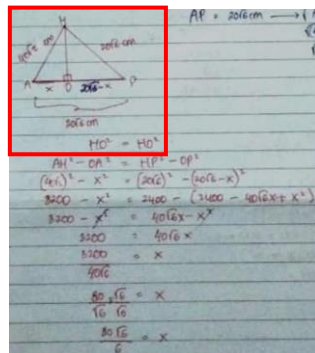 AP = 20√6 cm →
H
20√6 cm
A
O
P
x
20√6-x
20√6 cm
HO² = HO²
AH² - OA² = HP² - OP²
- x² = (20√6)² - (20√6-x)²
3200 - x² = 2400 - (2400 - 40√6x + x²)
3200 - x² = 40√6x - x²
3200 = 40√6x
3200 = x
40√6
80 . √6 = x
√6 √6
80√6 = x
6